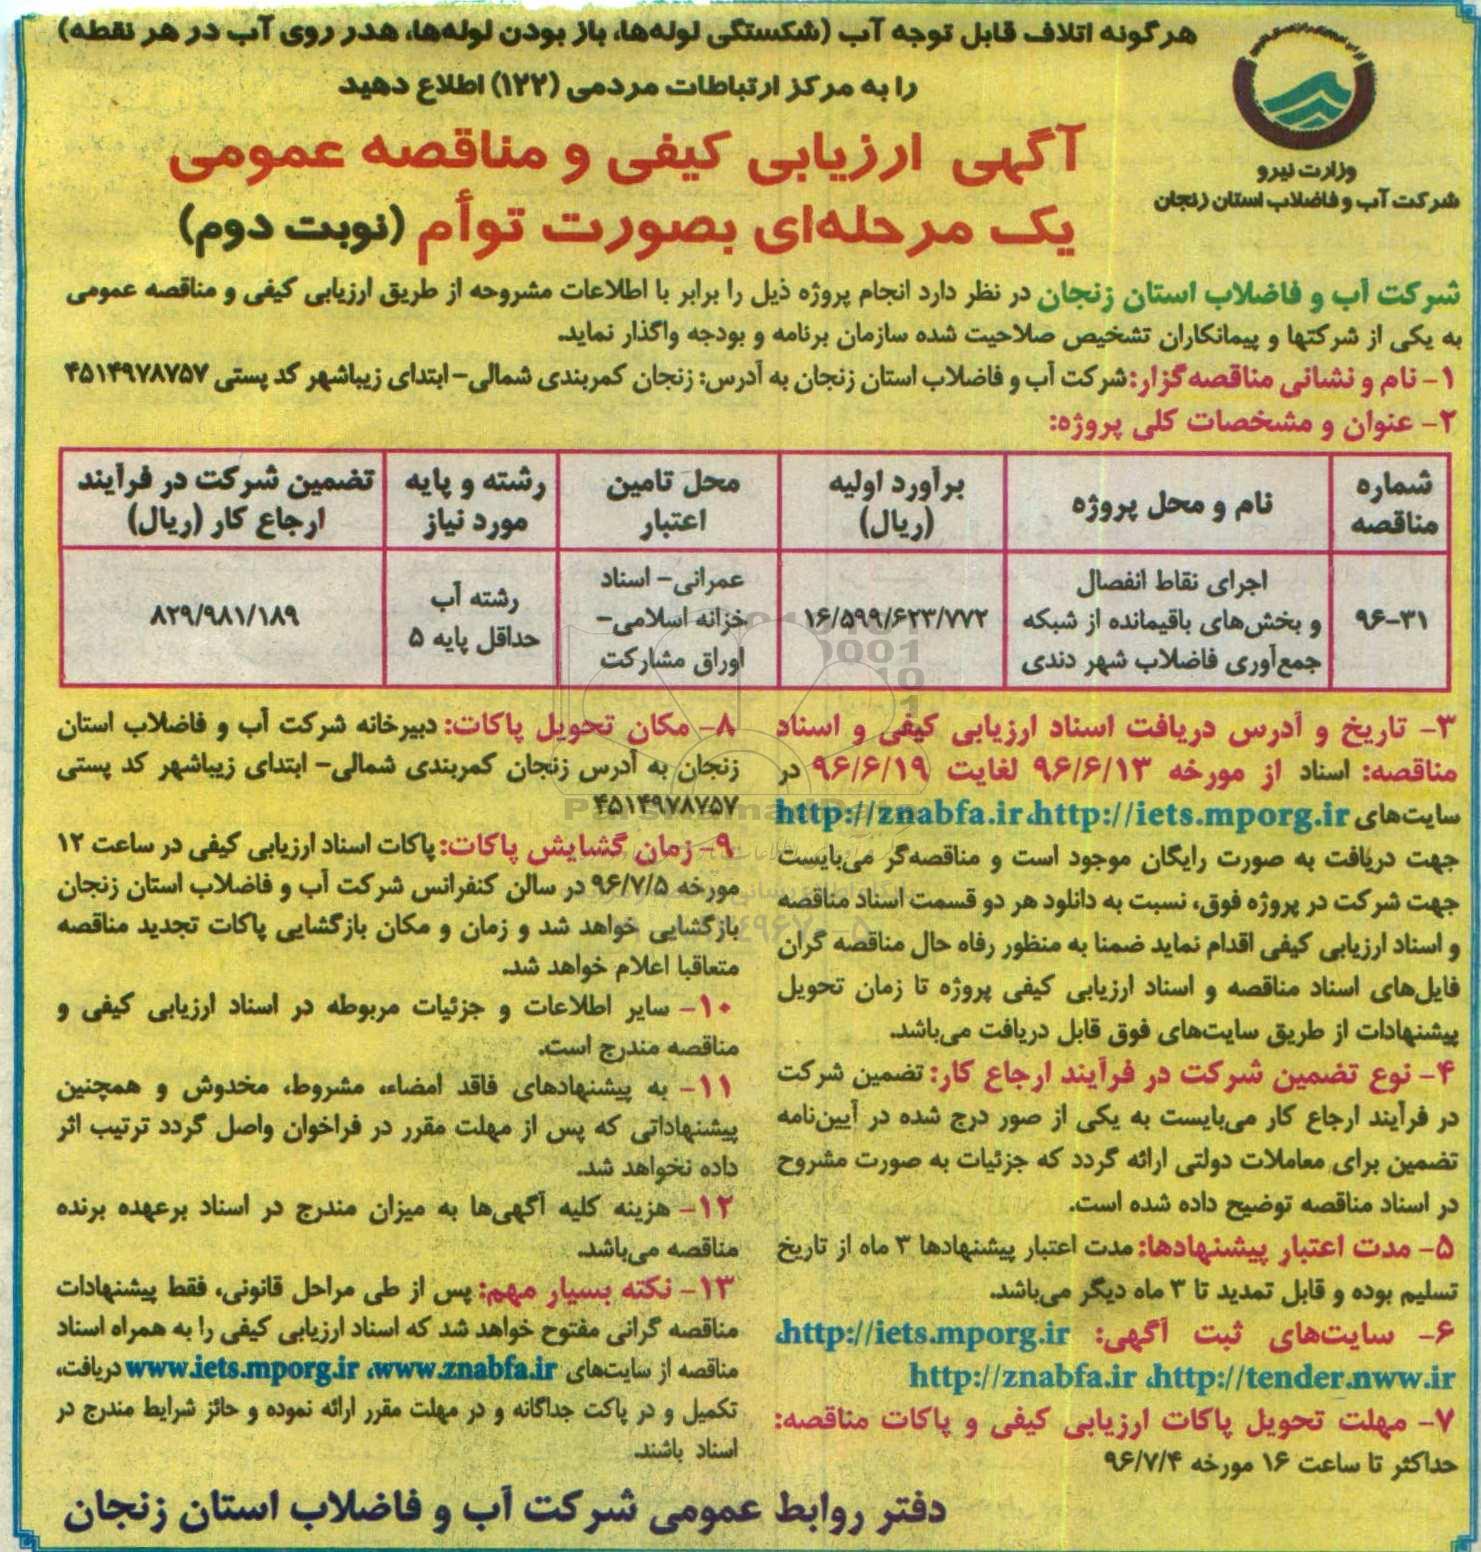 هرگونه اتلاف قابل توجه آب (شکستگی لوله‌ها، باز بودن لوله‌ها، هدر روی آب در هر نقطه)
را به مرکز ارتباطات مردمی (۱۲۲) اطلاع دهید
وزارت نیرو
شرکت آب و فاضلاب استان زنجان
آگهی ارزیابی کیفی و مناقصه عمومی
یک مرحله‌ای بصورت توأم (نوبت دوم)
شرکت آب و فاضلاب استان زنجان در نظر دارد انجام پروژه ذیل را برابر با اطلاعات مشروحه از طریق ارزیابی کیفی و مناقصه عمومی
به یکی از شرکتها و پیمانکاران تشخیص صلاحیت شده سازمان برنامه و بودجه واگذار نماید.
۱- نام و نشانی مناقصه‌گزار: شرکت آب و فاضلاب استان زنجان به آدرس: زنجان کمربندی شمالی- ابتدای زیباشهر کد پستی ۴۵۱۴۹۷۸۷۵۷
۲- عنوان و مشخصات کلی پروژه:
شماره مناقصه
نام و محل پروژه
برآورد اولیه (ریال)
محل تامین اعتبار
رشته و پایه مورد نیاز
تضمین شرکت در فرآیند ارجاع کار (ریال)
۹۶-۳۱
اجرای نقاط انفصال
و بخش‌های باقیمانده از شبکه
جمع‌آوری فاضلاب شهر دندی
۱۶/۵۹۹/۶۲۳/۷۷۲
عمرانی- اسناد
خزانه اسلامی-
اوراق مشارکت
رشته آب
حداقل پایه ۵
۸۲۹/۹۸۱/۱۸۹
۳- تاریخ و آدرس دریافت اسناد ارزیابی کیفی و اسناد
مناقصه: اسناد از مورخه ۹۶/۶/۱۳ لغایت ۹۶/۶/۱۹ در
سایت‌های http://iets.mporg.ir، http://znabfa.ir
جهت دریافت به صورت رایگان موجود است و مناقصه‌گر می‌بایست
جهت شرکت در پروژه فوق، نسبت به دانلود هر دو قسمت اسناد مناقصه
و اسناد ارزیابی کیفی اقدام نماید ضمنا به منظور رفاه حال مناقصه گران
فایل‌های اسناد مناقصه و اسناد ارزیابی کیفی پروژه تا زمان تحویل
پیشنهادات از طریق سایت‌های فوق قابل دریافت می‌باشد.
۴- نوع تضمین شرکت در فرآیند ارجاع کار: تضمین شرکت
در فرآیند ارجاع کار می‌بایست به یکی از صور درج شده در آیین‌نامه
تضمین برای معاملات دولتی ارائه گردد که جزئیات به صورت مشروح
در اسناد مناقصه توضیح داده شده است.
۵- مدت اعتبار پیشنهادها: مدت اعتبار پیشنهادها ۳ ماه از تاریخ
تسلیم بوده و قابل تمدید تا ۳ ماه دیگر می‌باشد.
۶- سایت‌های ثبت آگهی: http://iets.mporg.ir،
http://znabfa.ir ،http://tender.nww.ir
۷- مهلت تحویل پاکات ارزیابی کیفی و پاکات مناقصه:
حداکثر تا ساعت ۱۶ مورخه ۹۶/۷/۴
۸- مکان تحویل پاکات: دبیرخانه شرکت آب و فاضلاب استان
زنجان به آدرس زنجان کمربندی شمالی- ابتدای زیباشهر کد پستی
۴۵۱۴۹۷۸۷۵۷
۹- زمان گشایش پاکات: پاکات اسناد ارزیابی کیفی در ساعت ۱۲
مورخه ۹۶/۷/۵ در سالن کنفرانس شرکت آب و فاضلاب استان زنجان
بازگشایی خواهد شد و زمان و مکان بازگشایی پاکات تجدید مناقصه
متعاقبا اعلام خواهد شد.
۱۰- سایر اطلاعات و جزئیات مربوطه در اسناد ارزیابی کیفی و
مناقصه مندرج است.
۱۱- به پیشنهادهای فاقد امضاء، مشروط، مخدوش و همچنین
پیشنهاداتی که پس از مهلت مقرر در فراخوان واصل گردد ترتیب اثر
داده نخواهد شد.
۱۲- هزینه کلیه آگهی‌ها به میزان مندرج در اسناد برعهده برنده
مناقصه می‌باشد.
۱۳- نکته بسیار مهم: پس از طی مراحل قانونی، فقط پیشنهادات
مناقصه گرانی مفتوح خواهد شد که اسناد ارزیابی کیفی را به همراه اسناد
مناقصه از سایت‌های www.iets.mporg.ir ،www.znabfa.ir دریافت،
تکمیل و در پاکت جداگانه و در مهلت مقرر ارائه نموده و حائز شرایط مندرج در
اسناد باشند.
دفتر روابط عمومی شرکت آب و فاضلاب استان زنجان